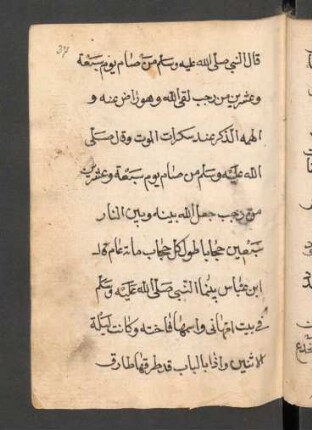 37
قال النبي صلى الله عليه وسلم من صام يوم سبعة
وعشرين من رجب لقى الله وهو راض عنه و
الهمه الذكر عند سكرات الموت وقال صلى
الله عليه وسلم من صام يوم سبعة وعشرين
من رجب جعل الله بينه وبين النار
سبعين حجابا طول كل حجاب مائة عام قال
ابن عباس بينما النبي صلى الله عليه وسلم
في بيت ام هانى واسمها فاخته وكانت ليلة
الاثنين واذا بالباب قد طرقها طارق